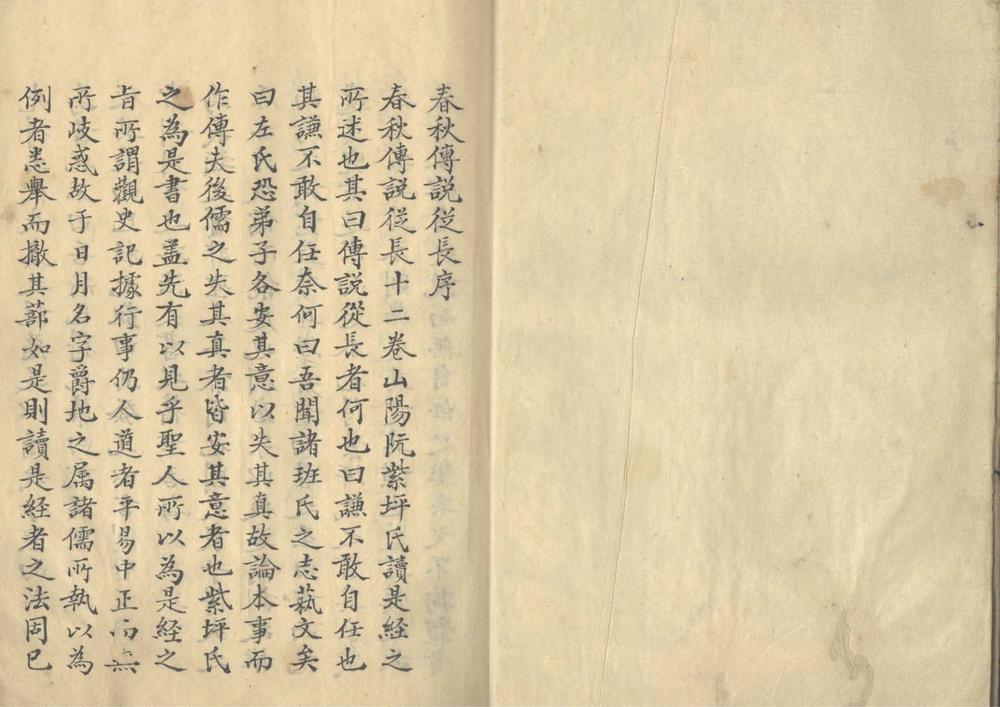 春秋傳説従長序
春秋傳説従長十二巻山陽阮紫坪氏讀是経之
所述也其曰傳説從長者何也曰謙不敢自任也
其謙不敢自任奈何曰吾聞諸班氏之志蓺文矣
曰左氏恐弟子各安其意以失其真故論本事而
作傳夫後儒之失其真者皆安其意者也紫坪氏
之為是書也盖先有以見乎聖人所以為是経之
旨所謂觀史記據行事仍人道者平易中正而無
所歧惑故于日月名字爵地之属諸儒所執以為
例者悉舉而撤其蔀如是則讀是経者之法固已